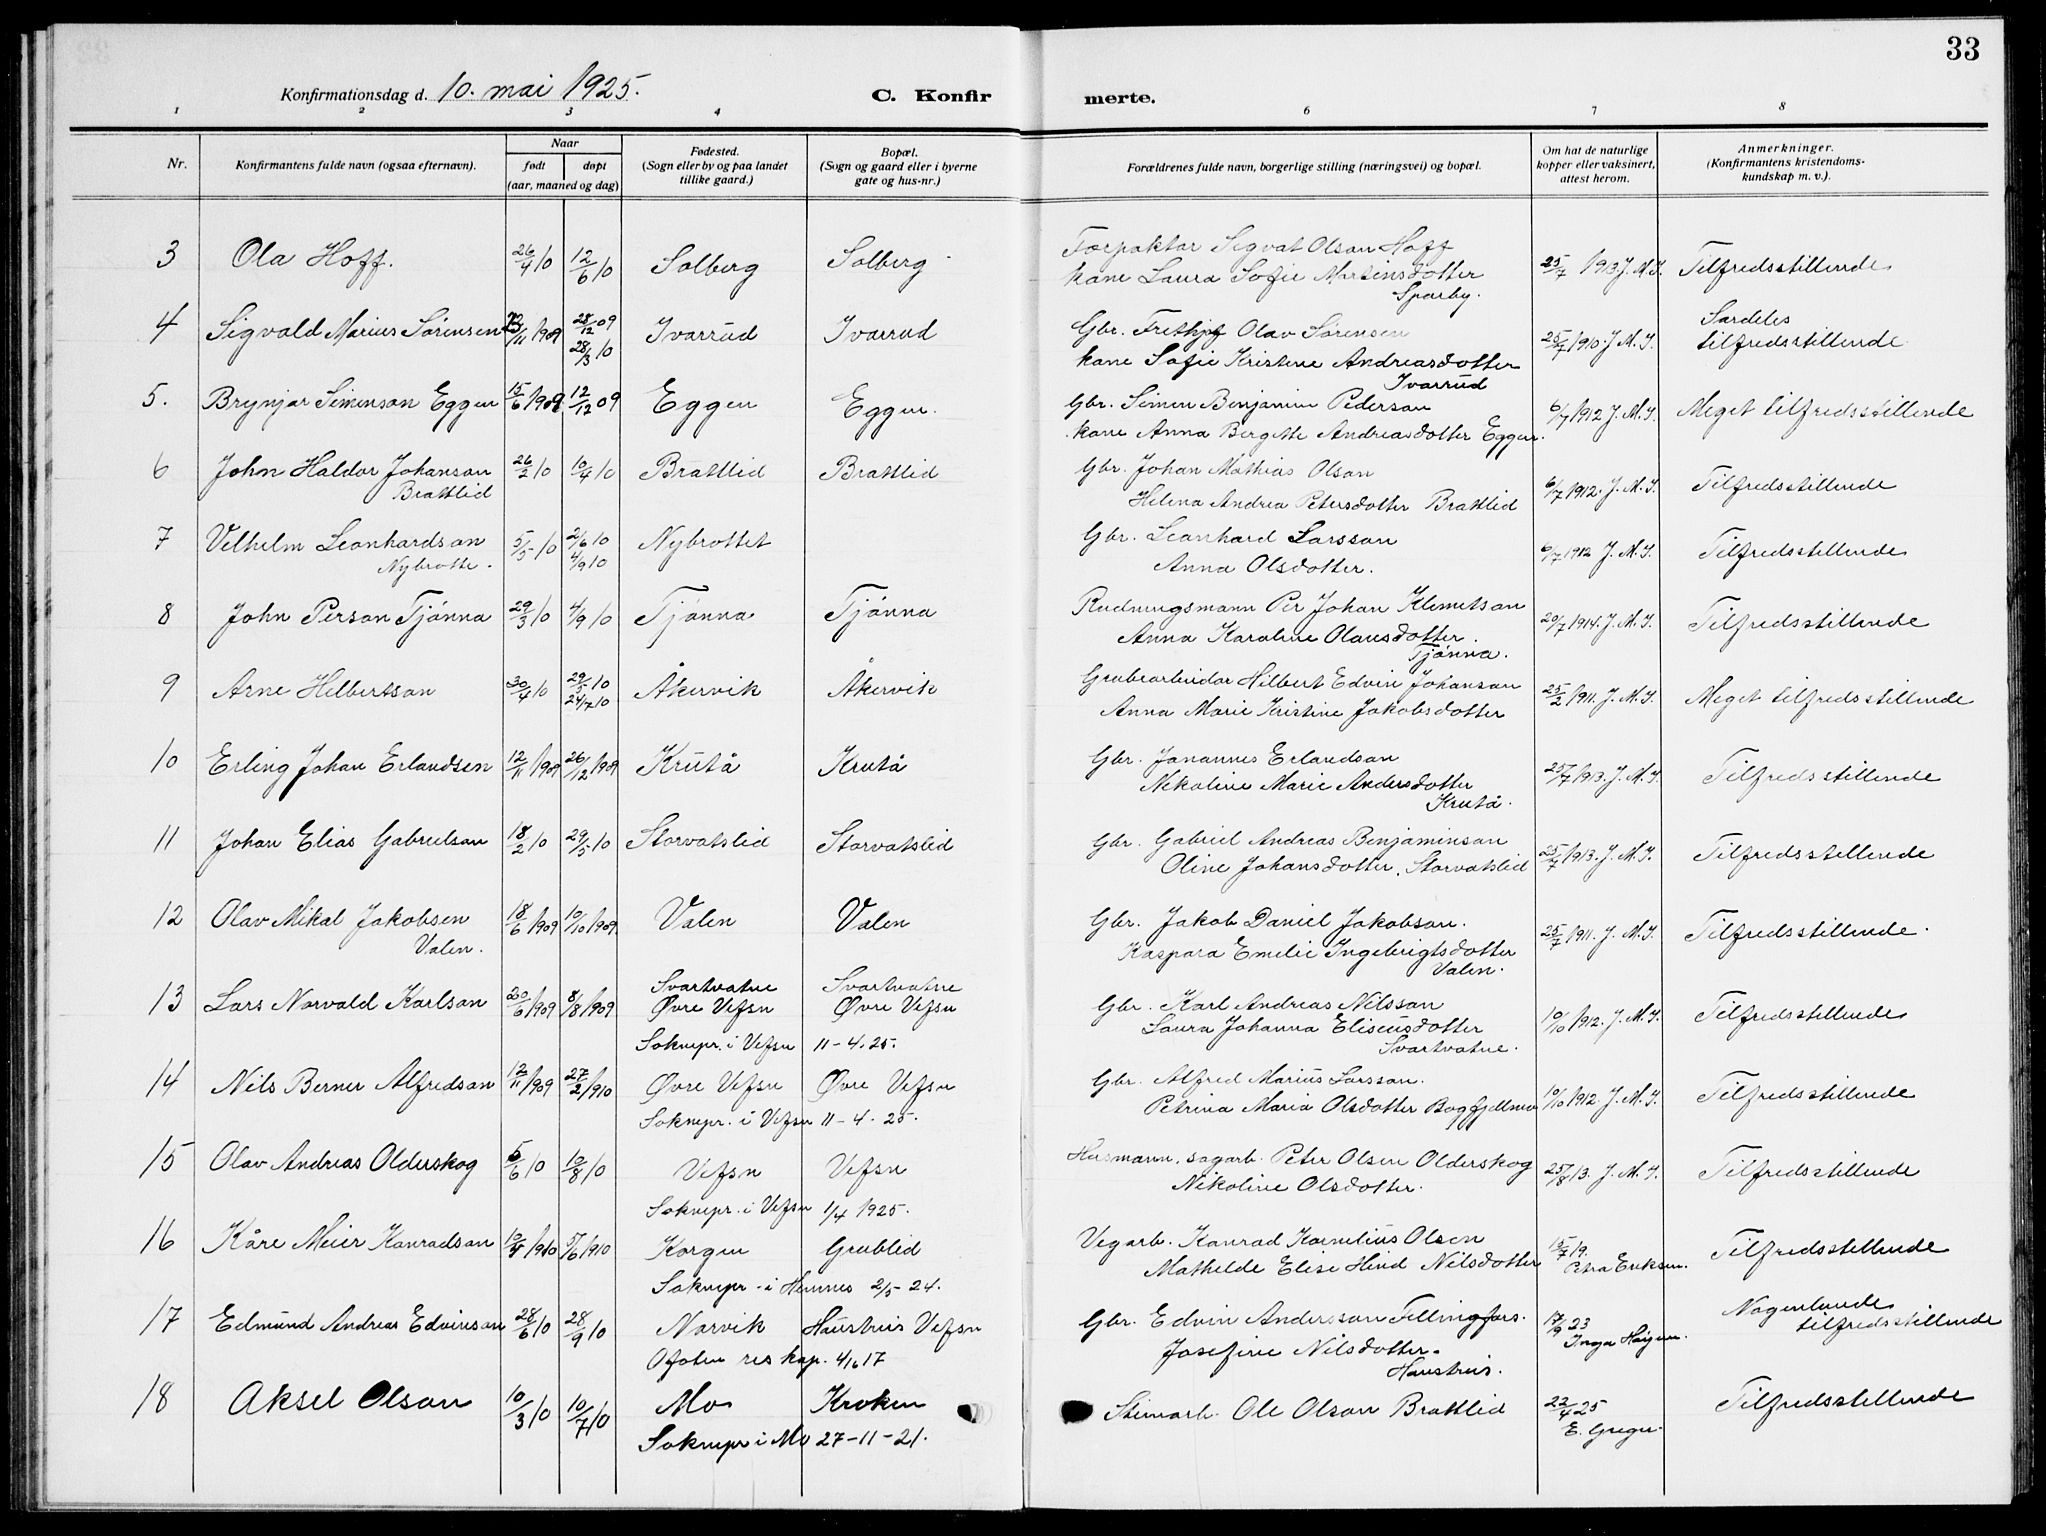 33
Konfirmationsdag d. 10. mai 1925.
C. Konfir merte.
1 2 3 4 6 7 8
Nr.
Konfirmantens fulde navn (ogsaa efternavn).
Naar
født døpt
(aar, maaned og dag)
Fødested.
(Sogn eller by og paa landet
tillike gaard.)
Bopæl.
(Sogn og gaard eller i byerne
gate og hus-nr.)
Forældrenes fulde navn, borgerlige stilling (næringsvei) og bopæl.
Om hat de naturlige
kopper eller vaksinert,
attest herom.
Anmerkninger.
(Konfirmantens kristendoms-
kundskap m. v.).
3 Ola Hoff. 26/4 10 12/6 10 Solberg Solberg Forpaktar Sigvat Olson Hoff
kone Laura Sofie Mortensdotter 25/7 1913 J. M. I. Tilfredsstillende
Sparby.
4 Sigvald Marius Sørensen 23/11 1909 28/12 09 28/3 10 Ivarrud Ivarrud Gbr. Frithjof Olav Sørensen 25/7 1910 J. M. I. Særdeles
tilfredsstillende
kone Sofie Kristine Andreasdotter
Ivarrud
5. Brynjar Simenson Eggen 15/6 1909 12/12 09 Eggen Eggen. Gbr. Simen Benjamin Pederson 6/7 1912 J. M. I. Meget tilfredsstillende
kone Anna Bergitte Andreasdotter Eggen.
6 John Haldor Johanson 26/2 10 10/4 10 Brattlid Brattlid Gbr. Johan Mathias Olson
Brattlid Helena Andrea Petersdotter Brattlid 6/7 1912. J. M. I. Tilfredsstillende
7 Vilhelm Leonhardson 5/5 10 2/6 10 4/9 10 Nybrottet Gbr. Leonhard Larsson 6/7 1912 J. M. I. Tilfredsstillende
Nybrotte. Anna Olsdotter.
8 John Person Tjønna 29/3 10 4/9 10 Tjønna Tjønna Rudningsmann Per Johan Klemetson 20/7 1914. J. M. I. Tilfredsstillende
Anna Karoline Olausdotter.
Tjønna.
9 Arne Hilbertson 30/4 10 29/5 10 24/7 10 Åkervik Åkervik Grubearbeidar Hilbert Edvin Johanson 25/2 1911. J. M. I. Meget tilfredsstillende
Anna Marie Kristine Jakobsdotter
10 Erling Johan Erlandsen 12/11 1909 26/12 1909 Krutå Krutå Gbr. Johannes Erlandson 25/7 1913. J. M. I. Tilfredsstillende
Nikoline Marie Andersdotter
Krutå.
11 Johan Elias Gabrielson 18/2 10 29/5 10 Storvatslid Storvatslid Gbr. Gabriel Andreas Benjaminson 25/7 1913. J. M. I. Tilfredsstillende
Oline Johansdotter. Storvatslid
12 Olav Mikal Jakobsen 18/6 1909 10/10 1909 Valen Valen Gbr. Jakob Daniel Jakobson. 25/7 1911. J. M. I. Tilfredsstillende.
Valen. Kaspara Emelie Ingebrigtsdotter
Valen.
13 Lars Norvald Karlson 20/6 1909 8/8 1909 Svartvatne Svartvatne
Øvre Vefsn Øvre Vefsn Gbr. Karl Andreas Nilsson 10/10 1912. J. M. I. Tilfredsstillende
Laura Johanna Eliseusdotter
Soknepr. i Vefsn 11-4.25. Svartvatne.
14 Nils Berner Alfredson 12/11 1909 27/2 1910 Øvre Vefsn Øvre Vefsn Gbr. Alfred Marius Larsson. 10/10 1912. J. M. I. Tilfredsstillende
Soknepr. i Vefsn 11-4-25. Petrina Maria Olsdotter
15 Olav Andreas Olderskog 5/6 10 10/8 10 Vefsn Vefsn Husmann, sagarb. Peter Olsen Olderskog 25/8 13. J. M. I. Tilfredsstillende
Nikoline Olsdotter.
Soknepr. i Vefsn 1/4 1925.
16 Kåre Meier Konradson 10/4 1910 5/6 1910 Korgen Grublid Vegarb. Konrad Kornelius Olsen 15/7 19. Petra Eriksen. Tilfredsstillende
Mathilde Elise Hind Nilsdotter
Soknepr. i Hemnes 2/5-24.
17 Edmund Andreas Edvinson 28/6 10 28/9 10 Narvik Haustreis Vefsn Gbr. Edvin Anderson Fellingfors. 17/9 23 Nogenlunde
tilfredsstillende
Ofoten res kap. 4/10 17 Josefine Nilsdotter.
Haustreis.
18 Aksel Olson 10/3 10 10/7 10 Mo Kroken Steinarb. Ole Olson Brattlid 22/4 25 Tilfredsstillende
Soknepr i Mo 27-11-21.